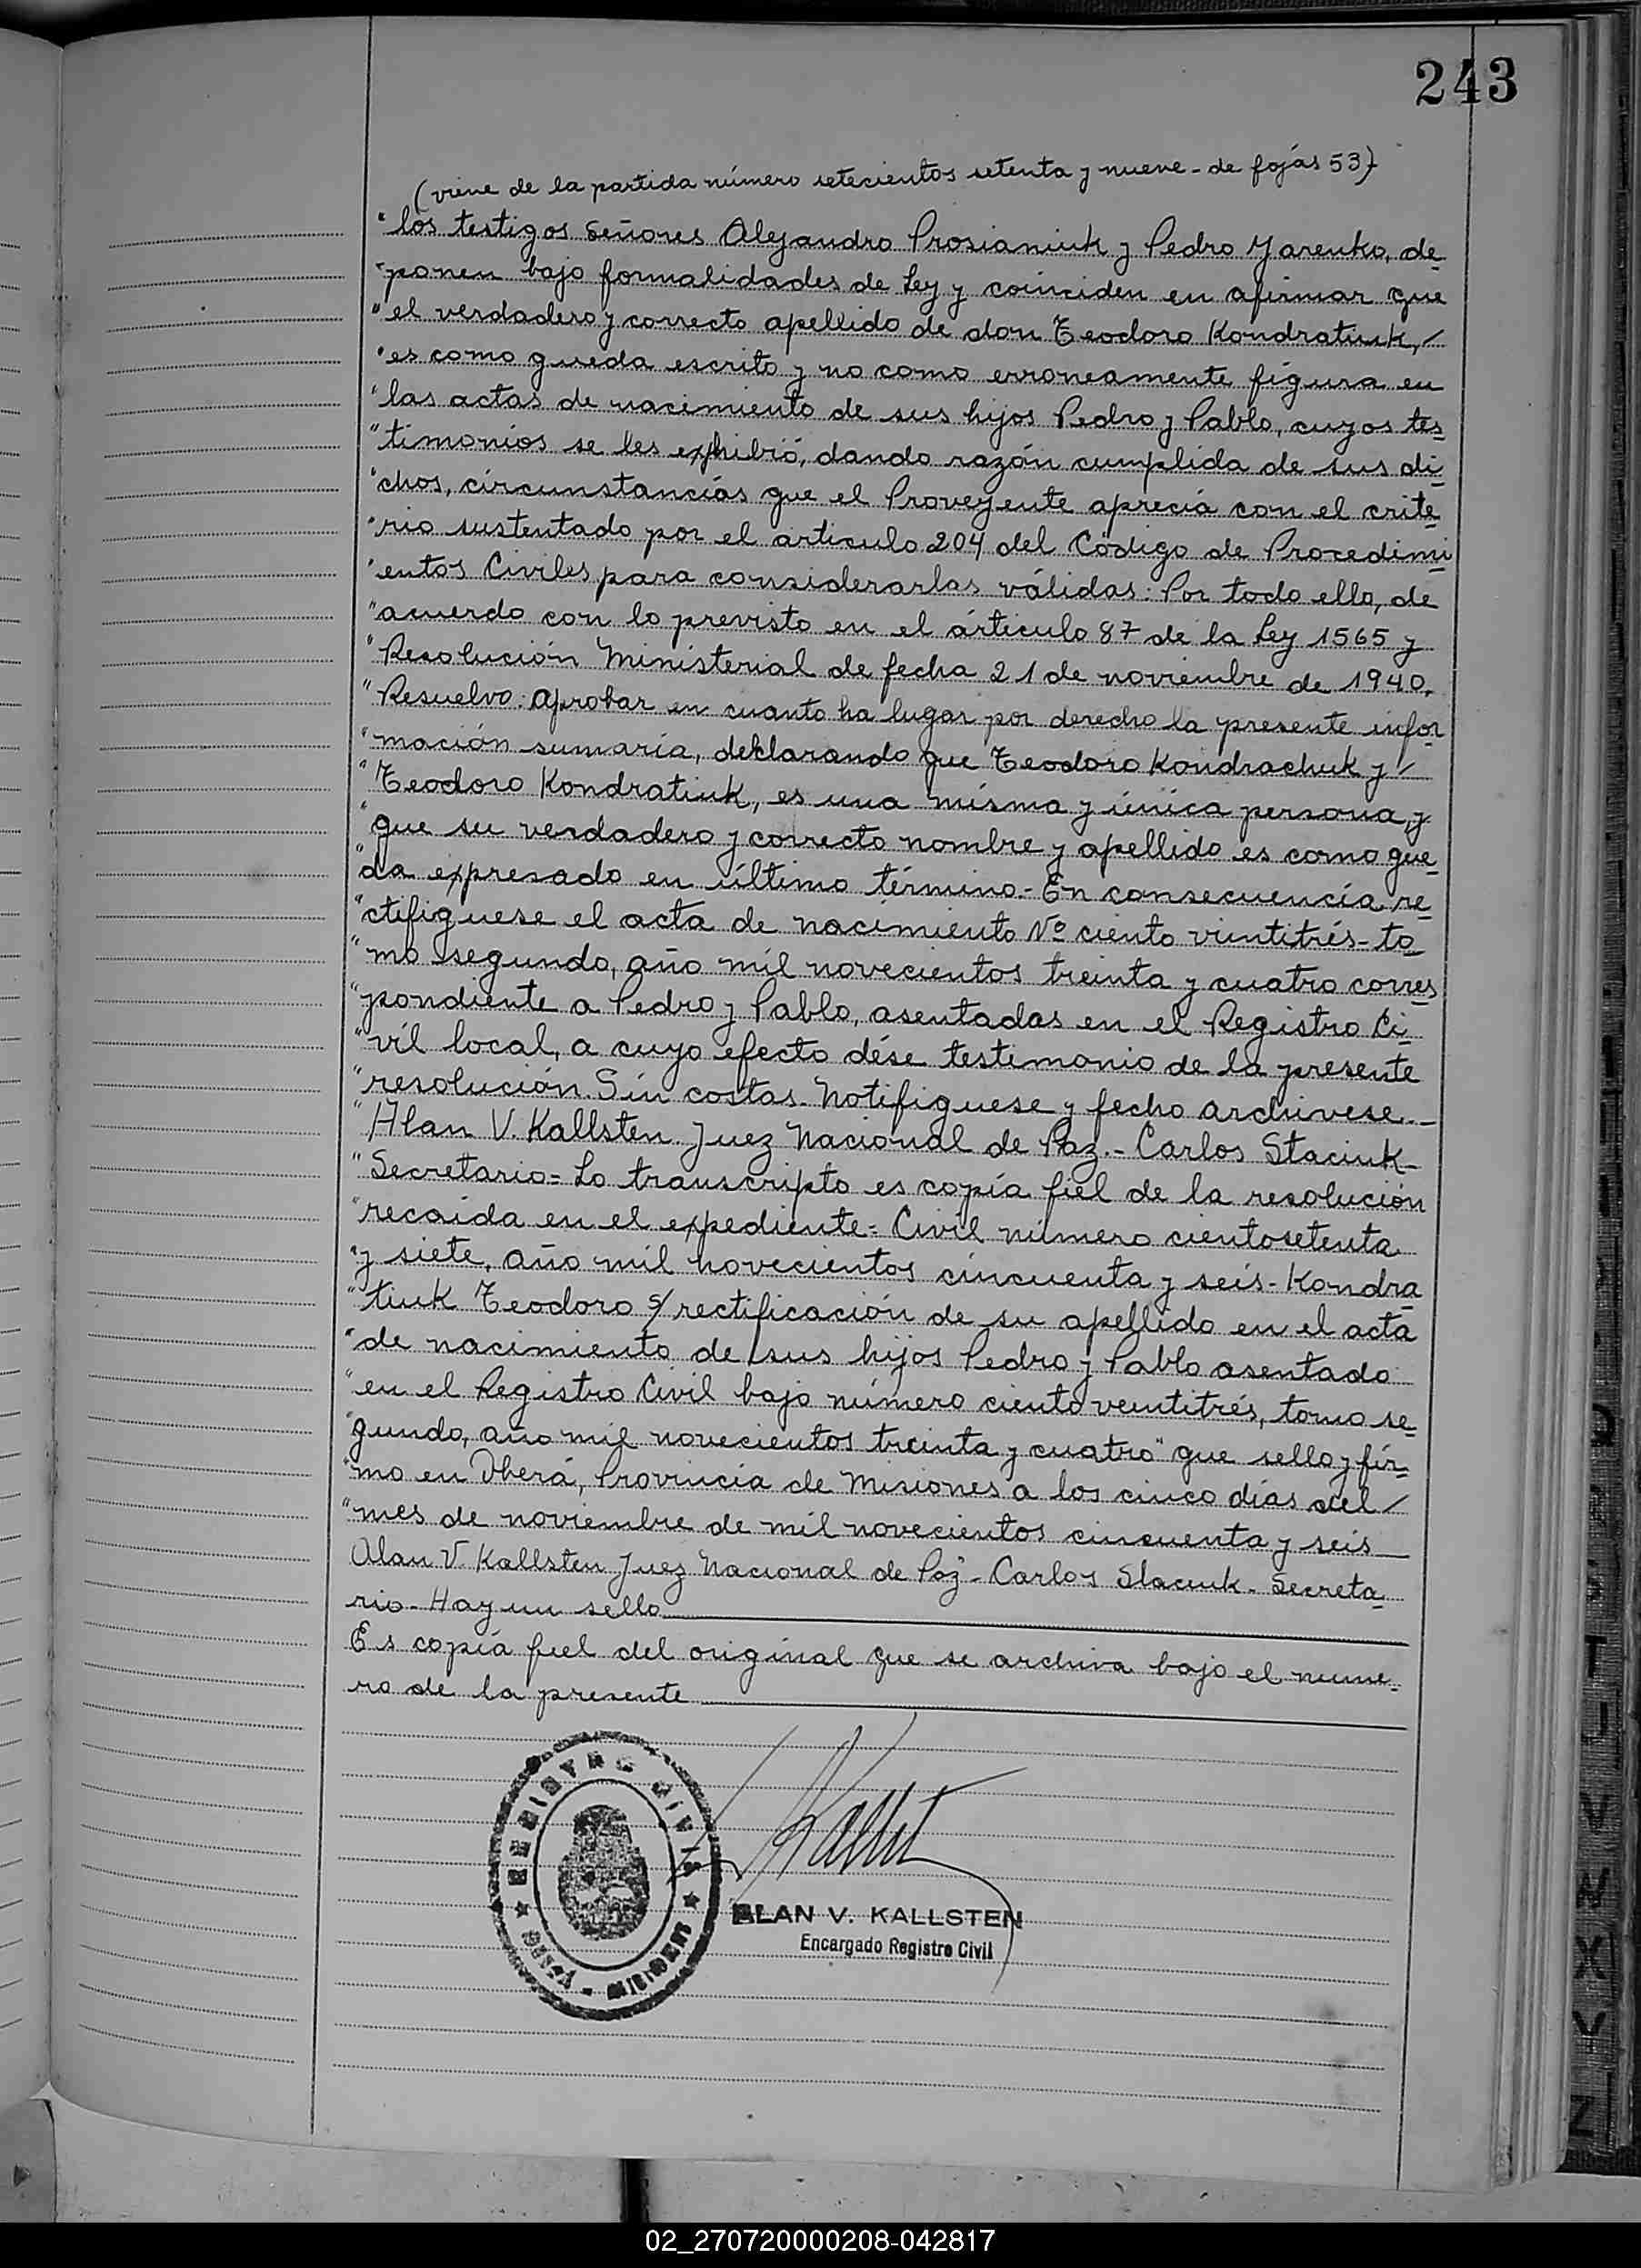 243
(viene de la partida número setecientos setenta y nueve - de fojas 53)
"los testigos Señores Alejandro Prosianiuk y Pedro Yarenko, de
"ponen bajo formalidades de Ley y coinciden en afirmar que
"el verdadero y correcto apellido de don Teodoro Kondratiuk, /
"es como queda escrito y no como erroneamente figura en
"las actas de nacimiento de sus hijos Pedro y Pablo, cuyos tes
"timonios se les exhibió, dando razón cumplida de sus di
"chos, circunstancias que el Proveyente aprecia con el crite
"rio sustentado por el articulo 204 del Código de Procedimi
"entos Civiles para considerarlas válidas: Por todo ello, de
"acuerdo con lo previsto en el árticulo 87 de la Ley 1565 y
"Resolución Ministerial de fecha 21 de noviembre de 1940.
"Resuelvo: aprobar en cuanto ha lugar por derecho la presente infor
"mación sumaria, deklarando que Teodoro Kondrachuk y /
"Teodoro Kondratiuk, es una misma y única persona, y
"que su verdadero y correcto nombre y apellido es como que
"da expresado en último término.- En consecuencia re
"ctifiquese el acta de nacimiento Nº ciento vintitrés - to
"mo segundo, año mil novecientos treinta y cuatro corres
"pondiente a Pedro y Pablo, asentadas en el Registro Ci
"vil local, a cuyo efecto dése testimonio de la presente
"resolución. Sin costas. Notifiquese y fecho archivese.-
"Alan V. Kallsten Juez Nacional de Paz.- Carlos Staciuk-
"Secretario= Lo transcripto es copía fiel de la resolución
"recaída en el expediente= Civil número ciento setenta
"y siete, año mil novecientos cincuenta y seis - Kondra
"tiuk Teodoro s/rectificación de su apellido en el acta
"de nacimiento de sus hijos Pedro y Pablo asentado
"en el Registro Civil bajo número ciento veintitrés, tomo se
"gundo, año mil novecientos treinta y cuatro" que sello y fir
"mo en Oberá, Provincia de Misiones a los cinco días del /
"mes de noviembre de mil novecientos cincuenta y seis
Alan V. Kallsten Juez Nacional de Paz - Carlos Staciuk - Secreta
rio - Hay un sello
Es copía fiel del original que se archiva bajo el nume
ro de la presente
REGISTRO CIVIL
OBERÁ - MISIONES
ALAN V. KALLSTEN
Encargado Registro Civil
02_270720000208-042817